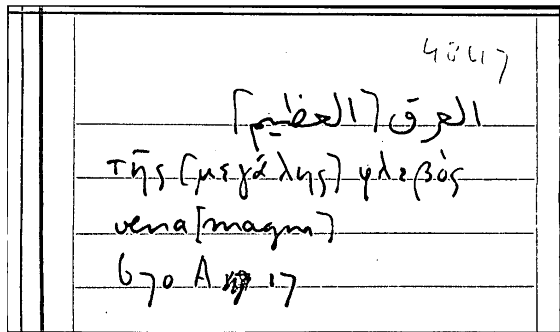 4047
العرق [العظيم]
τῆς [μεγάλης] φλεβὸς
vena [magna]
670 A 17